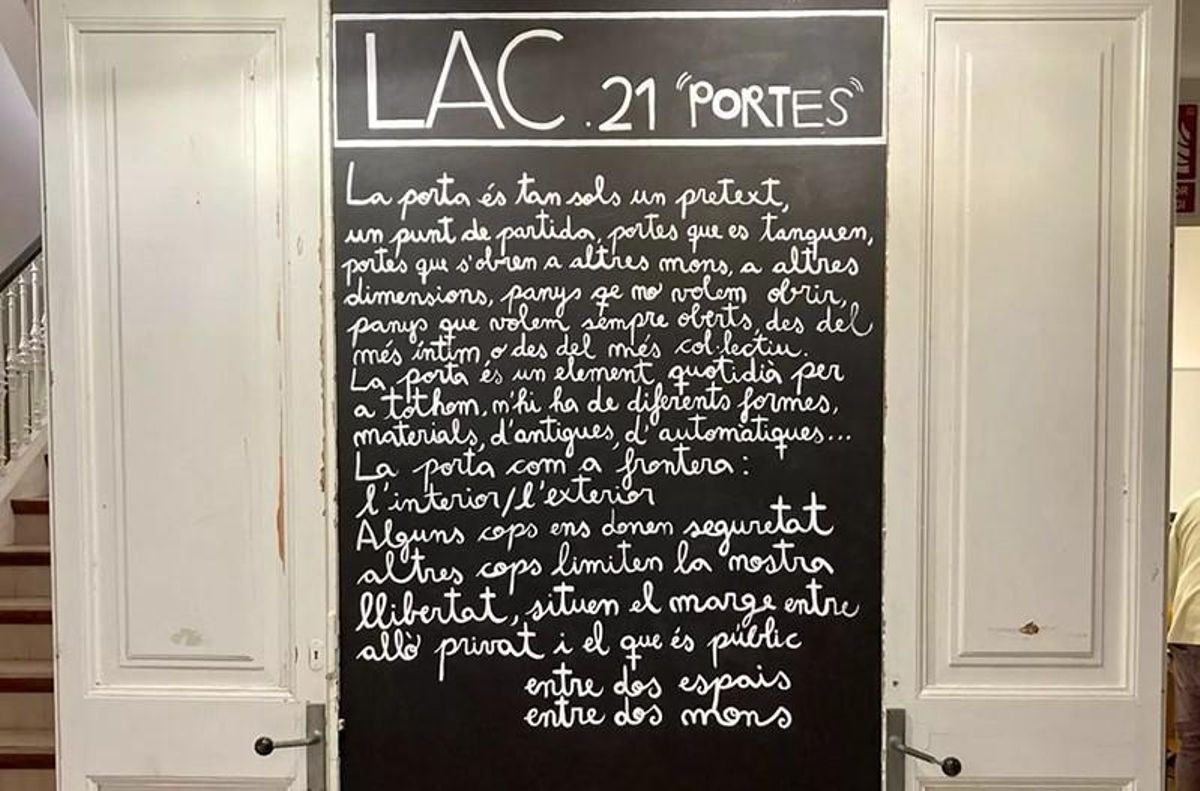 LAC .21 "PORTES"
La porta és tan sols un pretext,
un punt de partida, portes que es tanquen,
portes que s'obren a altres mons, a altres
dimensions, panys qe no volem obrir,
panys que volem sempre oberts, des del
més íntim, o des del més col·lectiu.
La porta és un element quotidià per
a tothom, n'hi ha de diferents formes,
materials, d'antigues, d'automàtiques...
La porta com a frontera:
l'interior/l'exterior
Alguns cops ens donen seguretat
altres cops limiten la nostra
llibertat, situen el marge entre
allò privat i el que és públic
entre dos espais
entre dos mons